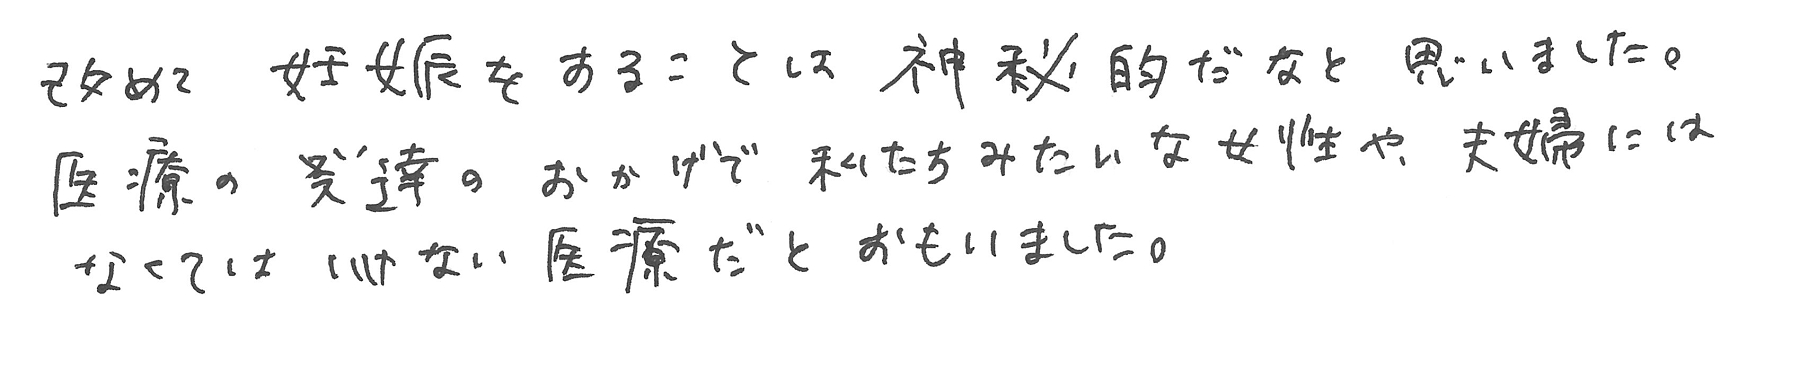 改めて 妊娠をすることは 神秘的だなと 思いました。
医療の 発達の おかげで 私たちみたいな女性や、夫婦には
なくては いけない 医療だと おもいました。